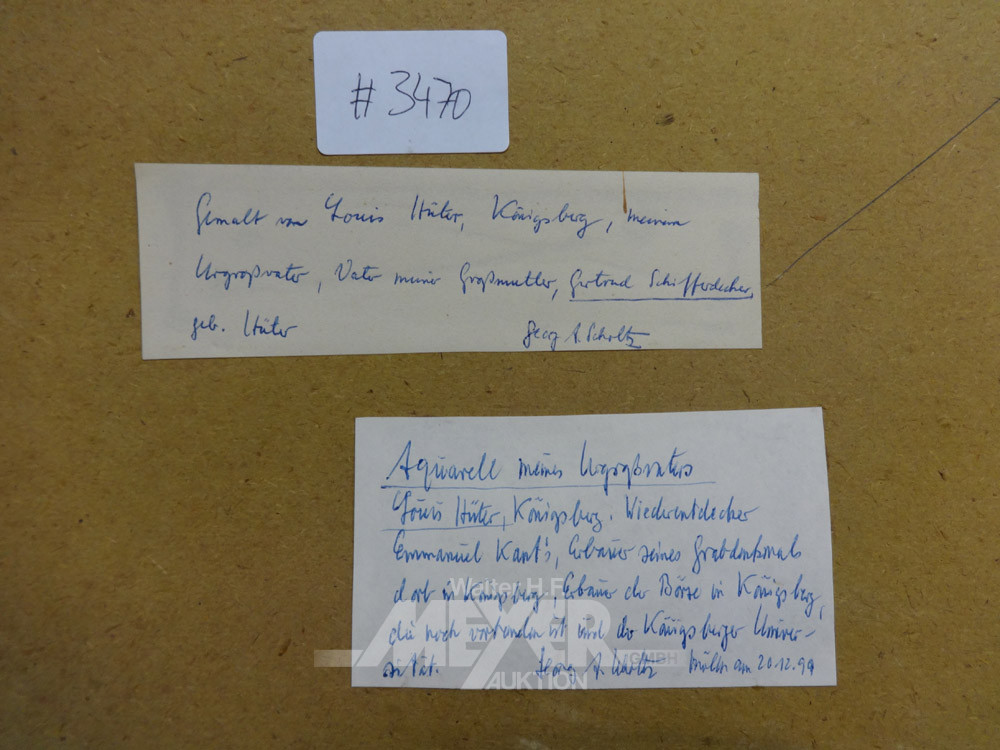 #3470
Gemalt von Louis Hüter, Königsberg, meinem
Urgroßvater, Vater meiner Großmutter, Gertrud Schifferdecker,
geb. Hüter
Georg A. Scholtz
Aquarell meines Urgroßvaters
Louis Hüter, Königsberg. Wiederentdecker
Emmanuel Kant's, Erbauer seines Grabdenkmals
dort in Königsberg, Erbauer der Börse in Königsberg,
die noch vorhanden ist und der Königsberger Univer-
sität. Georg A. Scholtz am 20.12.99
Walter H.F.
MEYER
GMBH
AUKTION